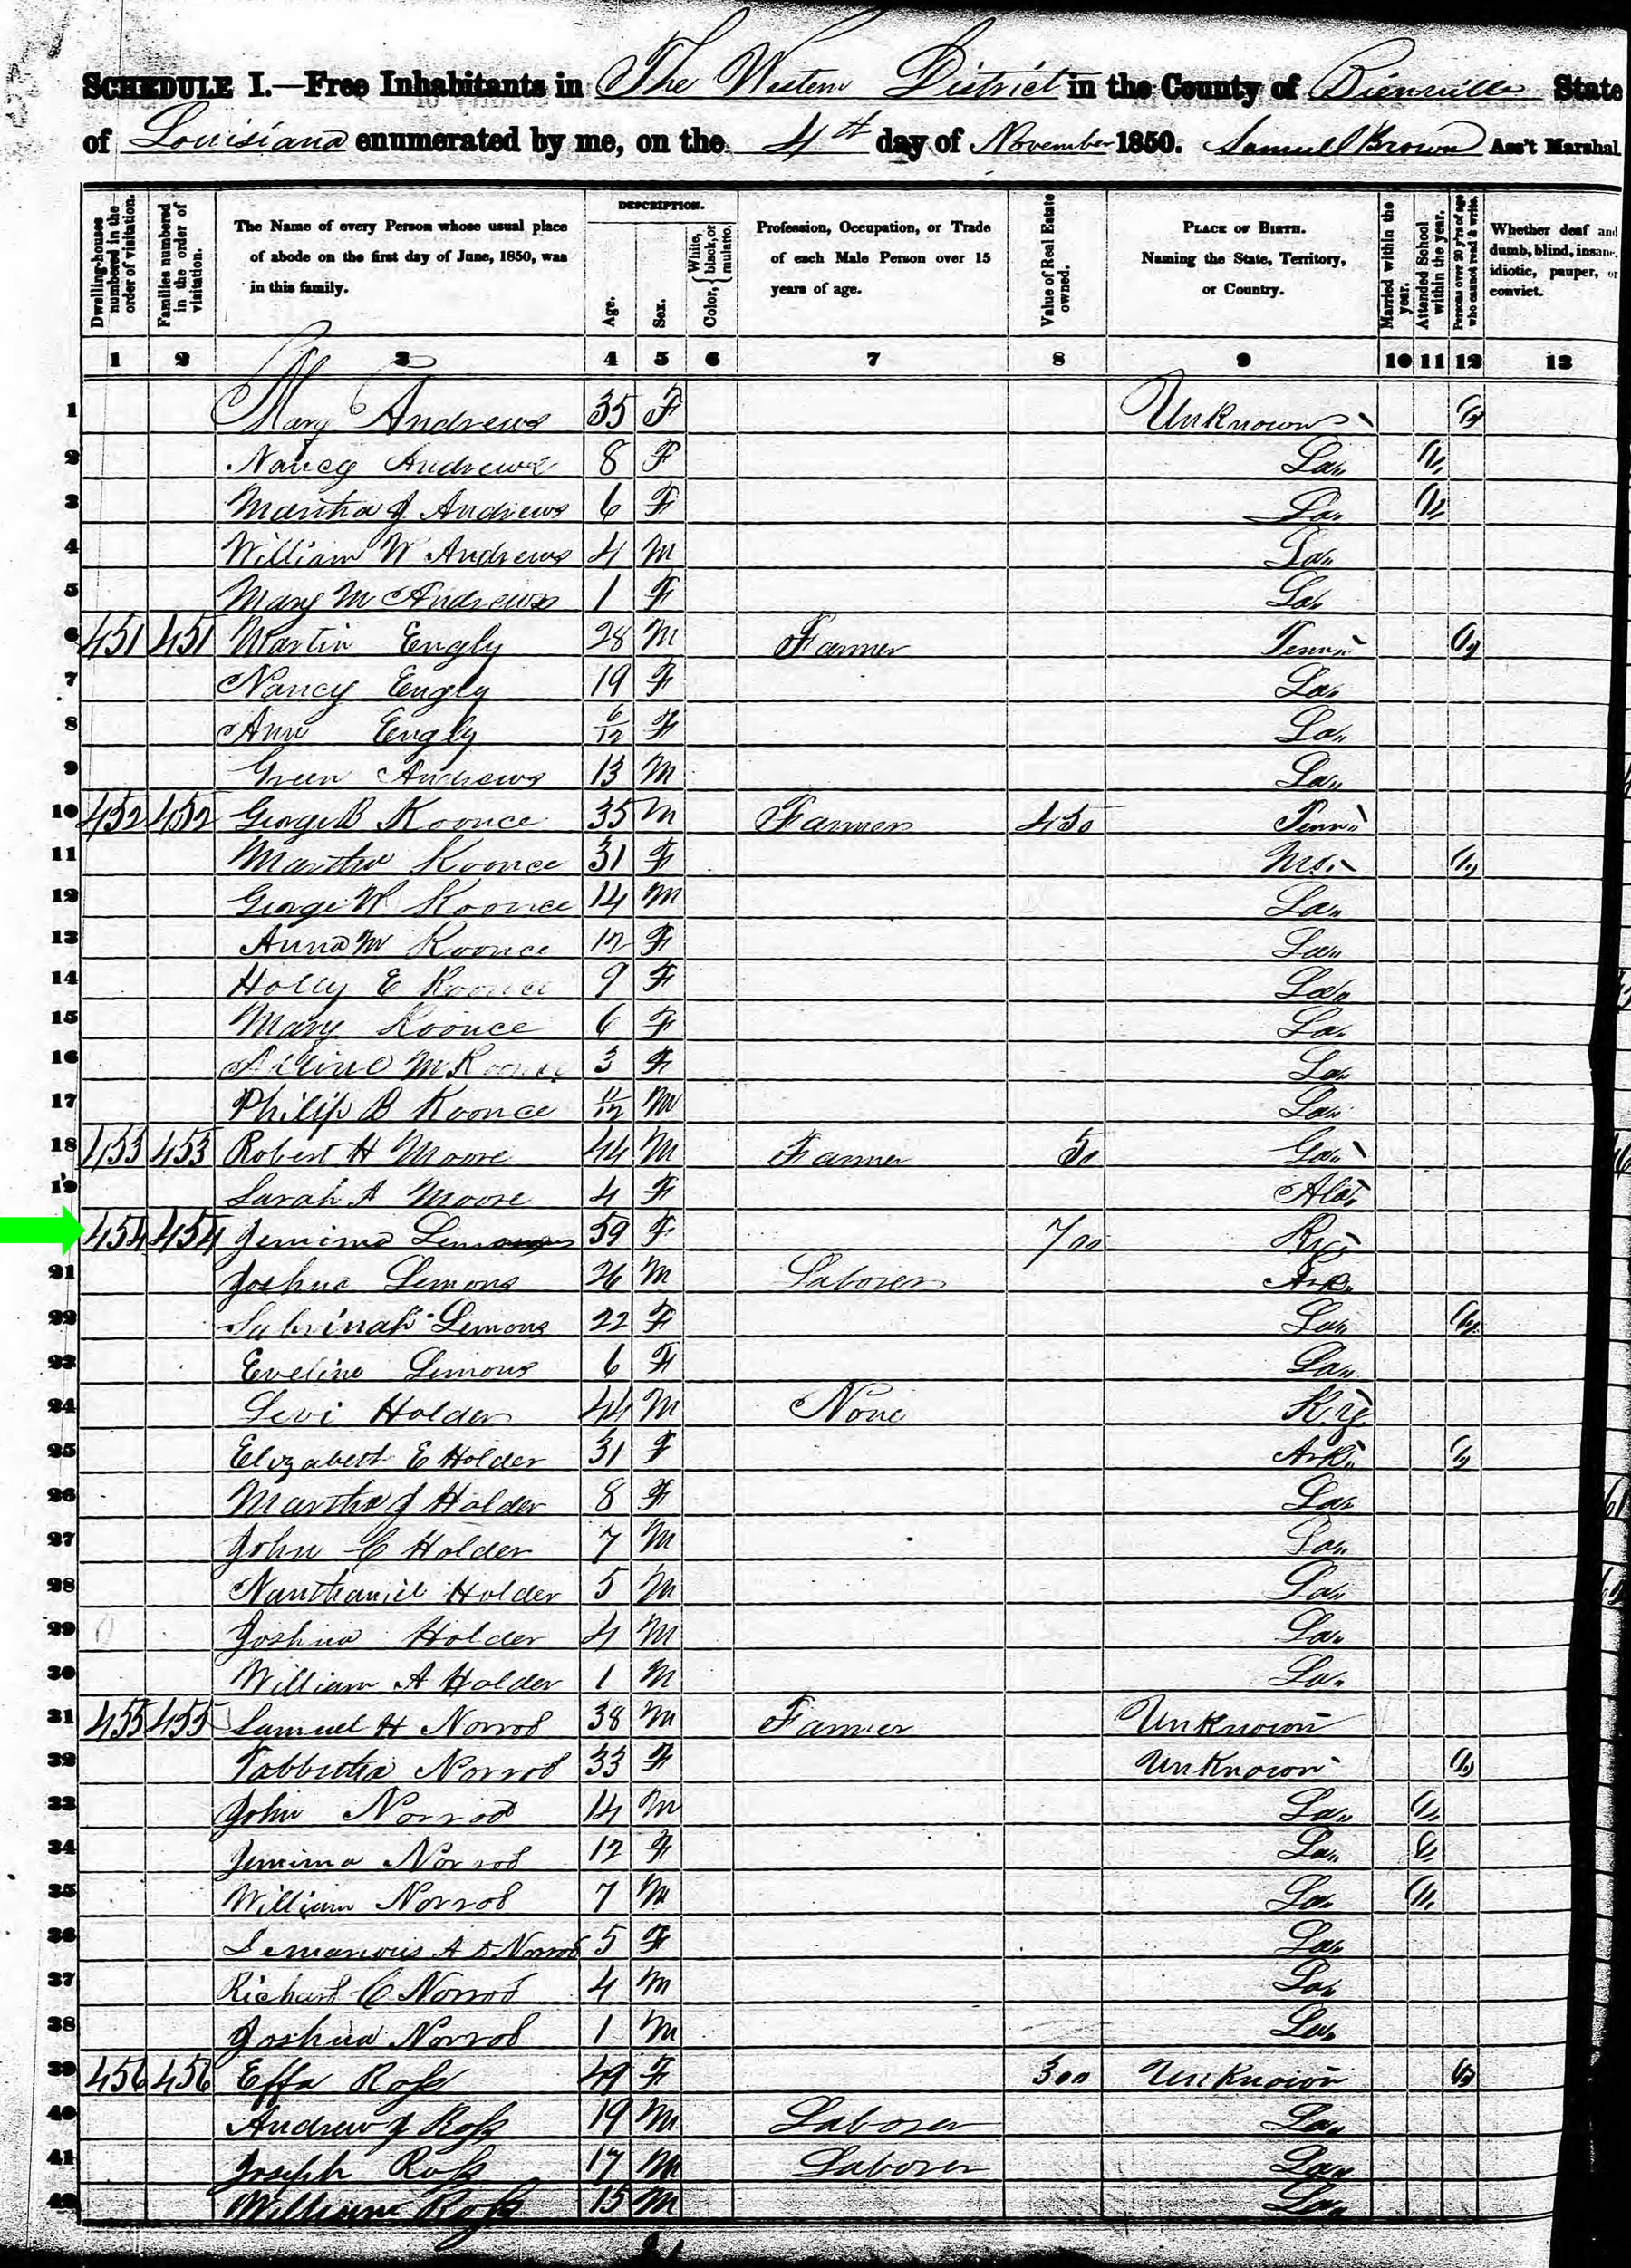 SCHEDULE I.—Free Inhabitants in The Western District in the County of Bienville State
of Louisiana enumerated by me, on the 4th day of November 1850. Samuel Brown Ass't Marshal
Dwelling-houses numbered in the order of visitation.
Families numbered in the order of visitation.
The Name of every Person whose usual place of abode on the first day of June, 1850, was in this family.
DESCRIPTION.
Age.
Sex.
Color, { White, black, or mulatto.
Profession, Occupation, or Trade of each Male Person over 15 years of age.
Value of Real Estate owned.
PLACE OF BIRTH. Naming the State, Territory, or Country.
Married within the year.
Attended School within the year.
Persons over 20 y'rs of age who cannot read & write.
Whether deaf and dumb, blind, insane, idiotic, pauper, or convict.
1 2 3 4 5 6 7 8 9 10 11 12 13
1 Mary Andrews 35 F Unknown 1
2 Nancy Andrews 8 F La. 1
3 Martha J Andrews 6 F La. 1
4 William W Andrews 4 M La.
5 Mary M Andrews 1 F La.
6 451 451 Martin Engly 28 M Farmer Tenn 1
7 Nancy Engly 19 F La.
8 Ann Engly 6/12 F La.
9 Green Andrews 13 M La.
10 452 452 George B Koonce 35 M Farmer 450 Tenn
11 Martha Koonce 31 F Mo. 1
12 George W Koonce 14 M La.
13 Anna M Koonce 12 F La.
14 Holly E Koonce 9 F La.
15 Mary Koonce 6 F La.
16 M Koonce 3 F La.
17 Philip B Koonce 11/12 M La.
18 453 453 Robert H Moore 44 M Farmer 50 Ga.
19 Sarah A Moore 4 F Ala.
454 454 Jemima Lemons 59 F 700 Ky
21 Joshua Lemons 26 M Laborer Ark.
22 Sabrinah Lemons 22 F La. 1
23 Eveline Lemons 6 F La.
24 Levi Holder 44 M None Ky
25 Elizabeth E Holder 31 F Ark. 1
26 Martha J Holder 8 F La.
27 John C Holder 7 M La.
28 Nanthaniel Holder 5 M La.
29 Joshua Holder 4 M La.
30 William A Holder 1 M La.
31 455 455 Samuel H Norrod 38 M Farmer Unknown
32 Tabbitha Norrod 33 F Unknown 1
33 John Norrod 14 M La. 1
34 Jemima Norrod 12 F La. 1
35 William Norrod 7 M La. 1
36 A D Norrod 5 F La.
37 Richard C Norrod 4 M La.
38 Joshua Norrod 1 M La.
39 456 456 Effa Ross 49 F 300 Unknown 1
40 Andrew J Ross 19 M Laborer La.
41 Joseph Ross 17 M Laborer La.
42 William Ross 15 M La.